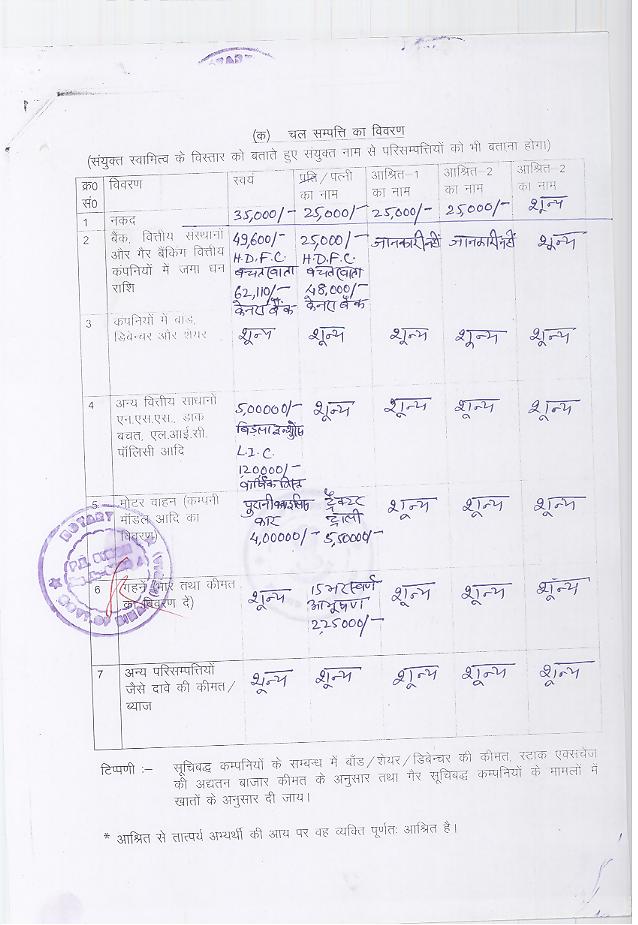 (क) चल सम्पत्ति का विवरण
(संयुक्त स्वामित्व के विस्तार को बताते हुए संयुक्त नाम से परिसम्पत्तियों को भी बताना होगा)
क्र० सं० विवरण स्वयं प्रति/पत्नी का नाम आश्रित-1 का नाम आश्रित-2 का नाम आश्रित-2 का नाम
1 नकद 35,000/- 25,000/- 25,000/- 25,000/- शून्य
2 बैंक, वित्तीय संस्थानों 49,600/- 25,000/- जानकारी नहीं जानकारी नहीं शून्य
और गैर बैंकिंग वित्तीय H.D.F.C. H.D.F.C.
कंपनियों में जमा धन बचत खाता बचत खाता
राशि 62,110/- 48,000/-
केनरा बैंक केनरा बैंक
3 कंपनियों में बांड,
डिबेन्चर और शेयर शून्य शून्य शून्य शून्य शून्य
4 अन्य वित्तीय साधानों 5,00000/- शून्य शून्य शून्य शून्य
एन.एस.एस., डाक बिड़ला
बचत, एल.आई.सी. L.I.C.
पॉलिसी आदि 120000/-
वार्षिक
5. मोटर वाहन (कम्पनी पुरानी ट्रैक्टर शून्य शून्य शून्य
मॉडल आदि का कार ट्रॉली
विवरण) 4,00000/- 5,50000/-
6 (गहने भार तथा कीमत शून्य 15 भर स्वर्ण शून्य शून्य शून्य
का विवरण दें) आभूषण
2,25000/-
7 अन्य परिसम्पत्तियों शून्य शून्य शून्य शून्य शून्य
जैसे दावे की कीमत/
ब्याज
टिप्पणी :– सूचिबद्ध कम्पनियों के सम्बन्ध में बॉंड/शेयर/डिबेन्चर की कीमत, स्टाक एक्सचेंज
की अद्यतन बाजार कीमत के अनुसार तथा गैर सूचिबद्ध कम्पनियों के मामलों में
खातों के अनुसार दी जाय।
* आश्रित से तात्पर्य अभ्यर्थी की आय पर वह व्यक्ति पूर्णतः आश्रित है।
NOTARY